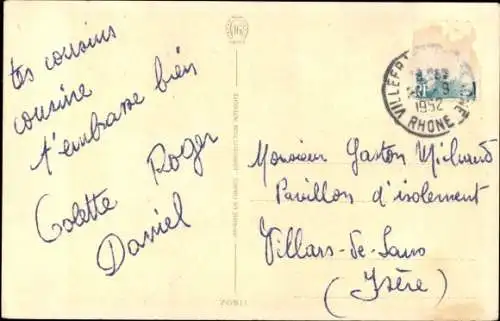 tes cousins
cousine
t'embrasse bien
Colette Roger
Daniel
VILLEFR
1952
RHONE
Monsieur Gaston Michaud
Pavillon d'isolement
Villars-de-Lans
(Isère)